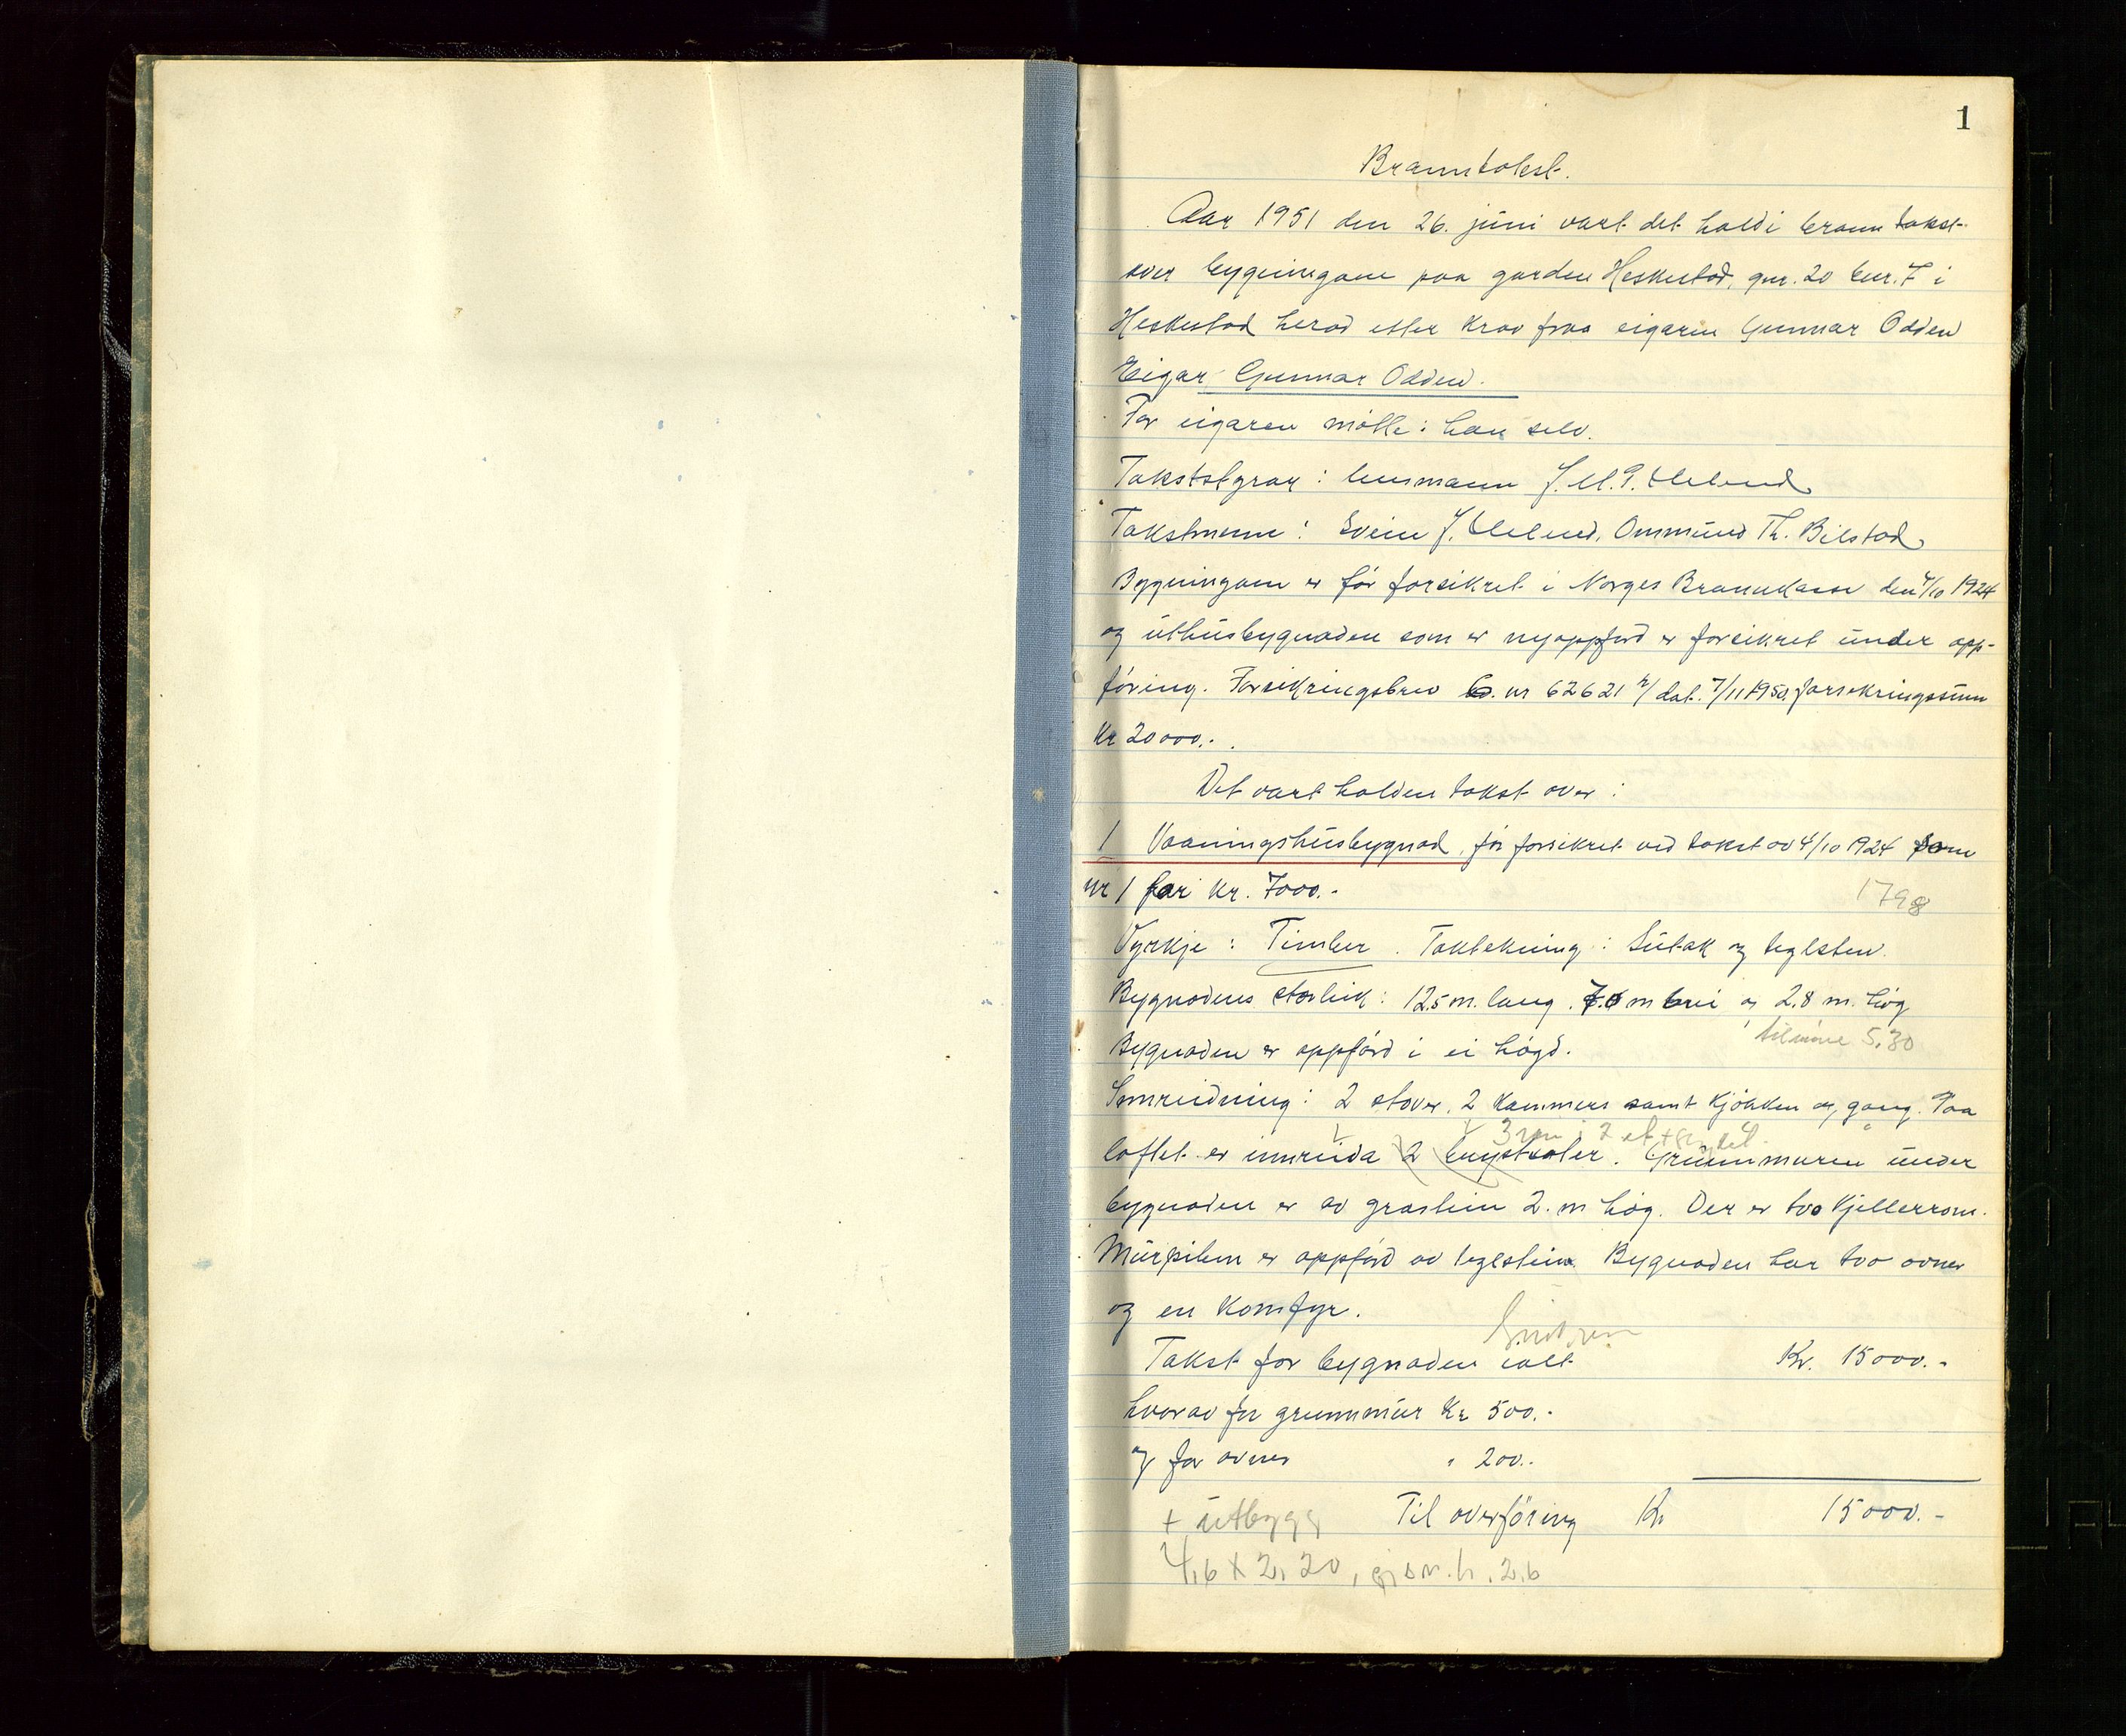 1
Branntakst.
Aar 1951 den 26. juni vart det haldi branntakst
over bygningane paa garden Heskestad, gnr. 20 bnr. 7 i
Heskestad herad etter krav fraa eigaren Gunnar Odden
Eigar Gunnar Odden.
For eigaren møtte: han selv.
Takststyrar: lensmann J. M. P. Ueland
Takstmenn: Svein J. Ueland, Ommund Th. Bilstad
Bygningane er før forsikret i Norges Brannkasse den 4/10 1924
og uthusbygnaden som er nyoppførd er forsikret under opp-
føring. Forsikringsbrev nr 62621 dat. 7/11 1950. forsekringssum
Kr 20000.-
Det vart halden takst over:
1 Vaaningshusbygnad, før forsikret ved takst av 4/10 1924 som
nr 1 for kr. 7000.-
1798
Vyrkje: Timber. Taktekning: Sutak og teglsten.
Bygnadens storleik: 12,5 m. lang. 7.6 m brei og 2.8 m. høg
Bygnaden er oppførd i ei høgd.
til møne 5.30
Innreidning: 2 stover, 2 kammers samt kjøkken og gang. Paa
3 rom i 2 et +
loftet er innreida 2 kvistsaler. Grunnmuren under
bygnaden er av grastein 2. m høg. Der er tvo kjellerrom.
Murpiben er oppførd av teglstein. Bygnaden har tvo ovner
og en komfyr.
Takst for bygnaden ialt Kr. 15000.-
hvorav for grunnmur Kr 500.-
og for ovner " 200.-
+ utbygg Til overføring Kr 15000.-
4,6 x 2,20, gj.sn. h. 2,6